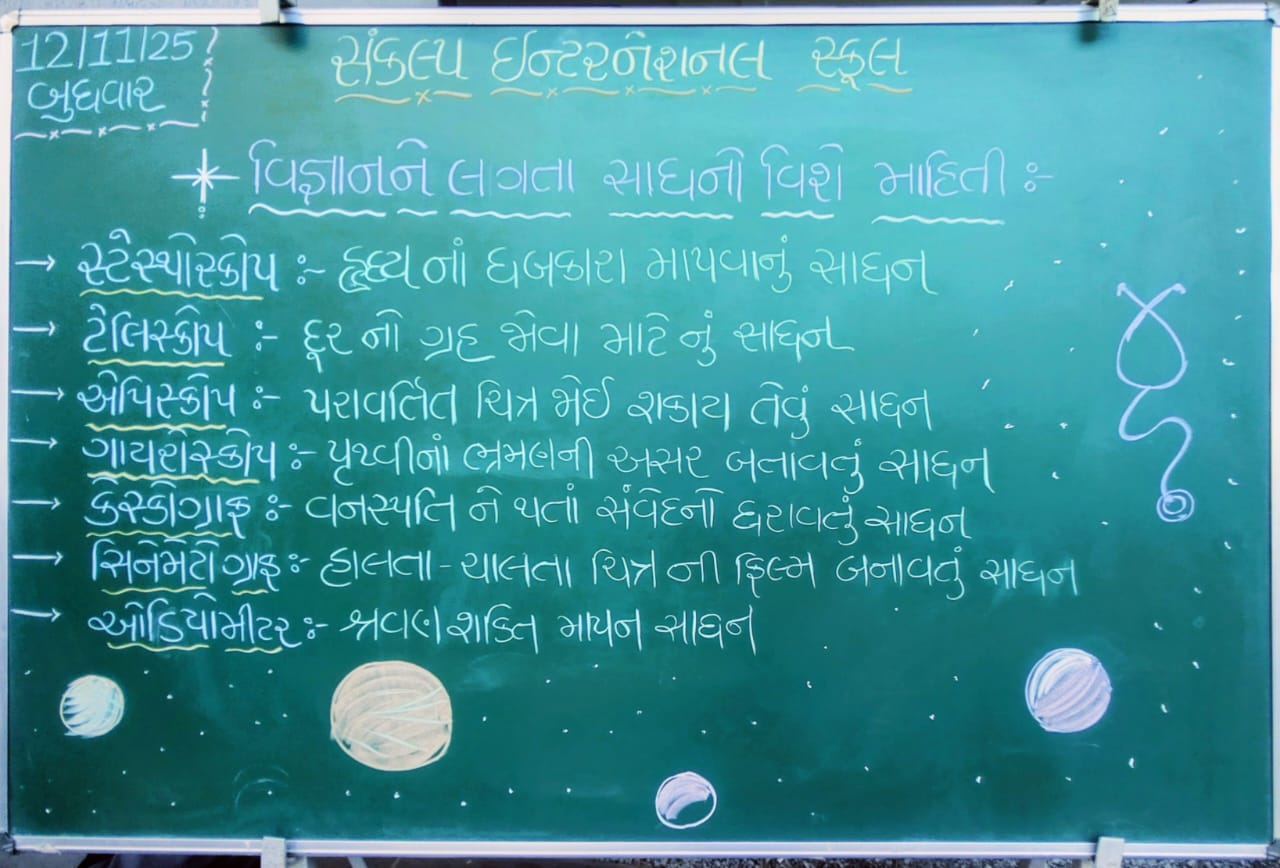 12/11/25
બુધવાર
સંકલ્પ ઈન્ટરનેશનલ સ્કૂલ
વિજ્ઞાનને લગતા સાધનો વિશે માહિતી :-
→ સ્ટેસ્થોસ્કોપ :- હૃદય નાં ધબકારા માપવાનું સાધન
→ ટેલિસ્કોપ :- દૂર નો ગ્રહ જોવા માટે નું સાધન
→ એપિસ્કોપ :- પરાવર્તિત ચિત્ર જોઈ શકાય તેવું સાધન
→ ગાયરોસ્કોપ :- પૃથ્વીનાં ભ્રમણની અસર બતાવતું સાધન
→ કેસ્કોગ્રાફ :- વનસ્પતિ ને થતાં સંવેદનો ધરાવતું સાધન
→ સિનેમેટોગ્રાફ :- હાલતા - ચાલતા ચિત્ર ની ફિલ્મ બનાવતું સાધન
→ ઓડિયોમીટર :- શ્રવણ શક્તિ માપન સાધન